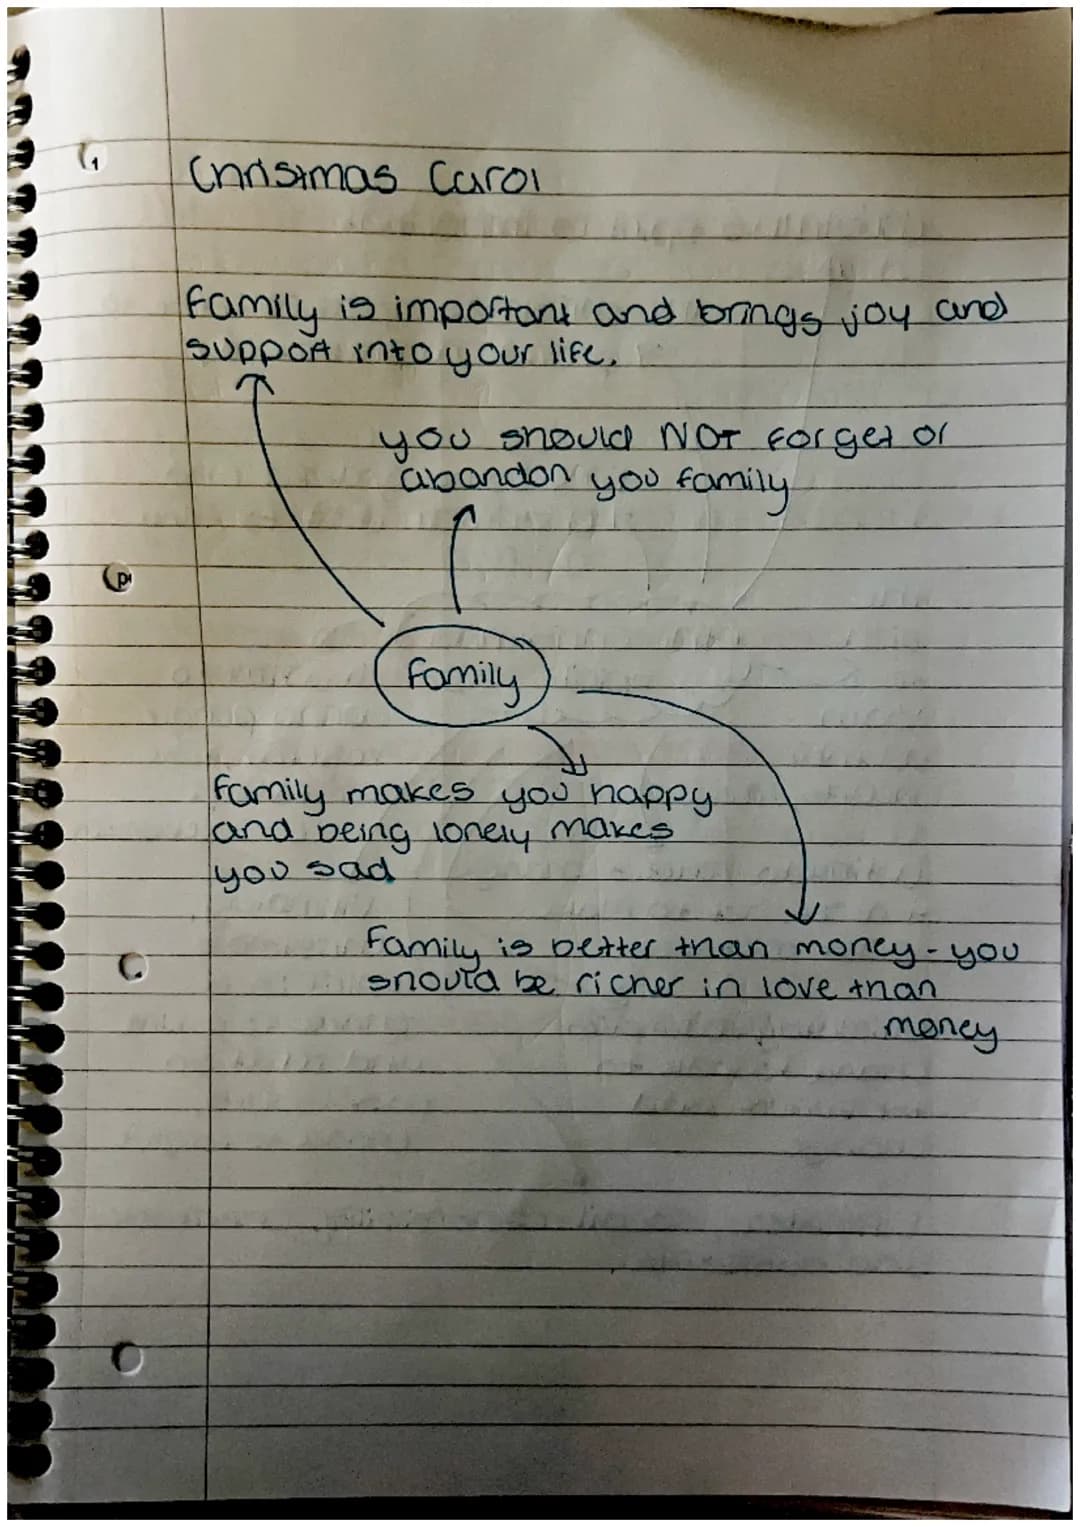 Christmas Carol
Family is important and brings joy and
support into your life.
you should NOT forget or
abandon you family
family
Family makes you happy
and being lonely makes
you sad
Family is better than money - you
should be richer in love than
money